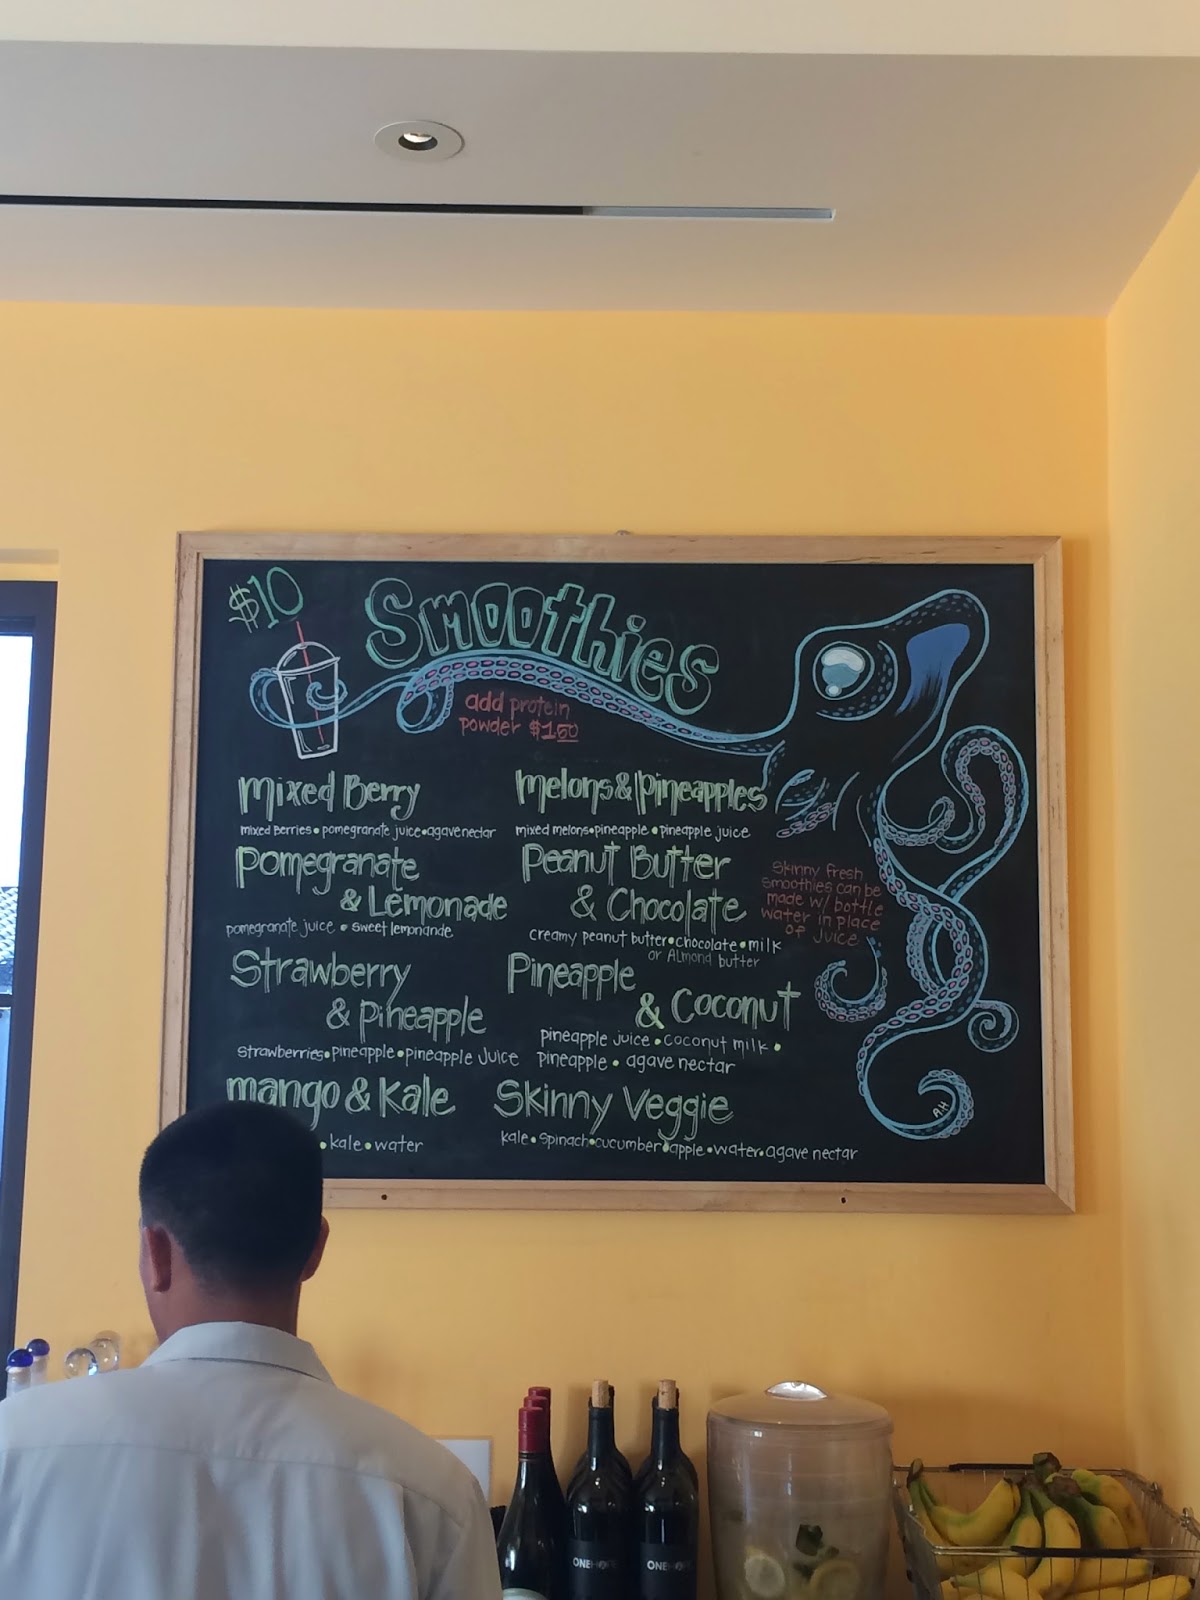 $10
Smoothies
add protein
powder $1.50
mixed Berry
mixed Berries • pomegranate juice • agave nectar
Pomegranate
& Lemonade
pomegranate juice • sweet lemonande
Strawberry
& Pineapple
strawberries • pineapple • pineapple juice
mango & Kale
• kale • water
melons & pineapples
mixed melons • pineapple • pineapple juice
Peanut Butter
& Chocolate
creamy peanut butter • chocolate • milk
or Almond butter
Pineapple
& Coconut
pineapple juice • coconut milk •
pineapple • agave nectar
Skinny Veggie
kale • spinach • cucumber • apple • water • agave nectar
Skinny fresh
smoothies can be
made w/ bottle
water in place
of juice
A.H
ONEHOPE
ONEHOPE